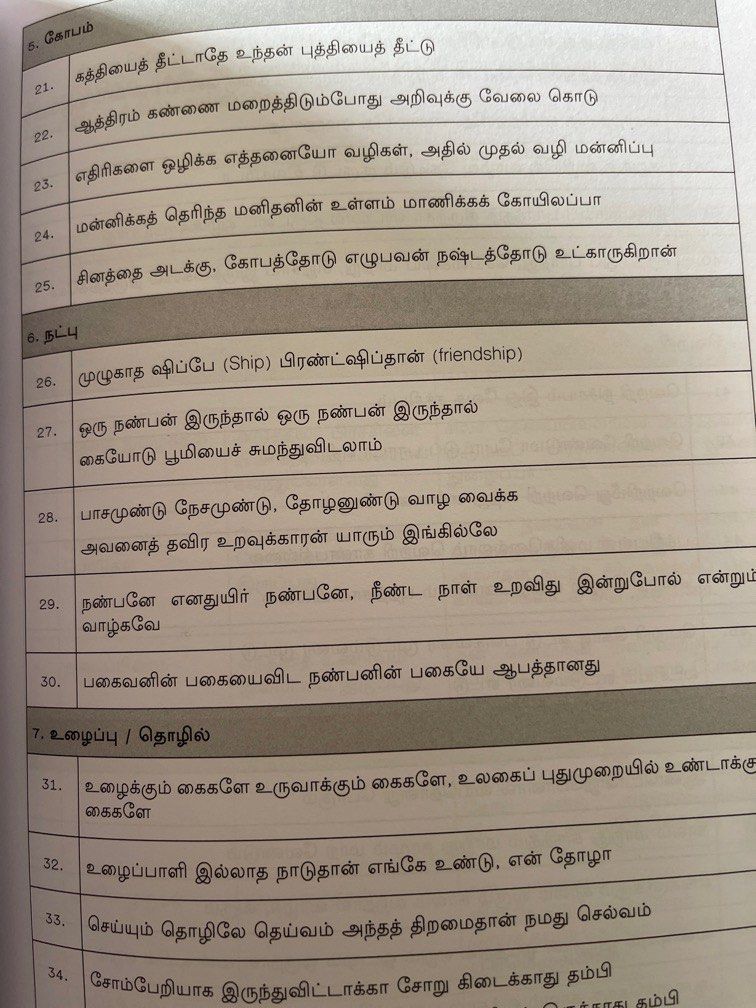 5. கோபம்
21. கத்தியைத் தீட்டாதே உந்தன் புத்தியைத் தீட்டு
22. ஆத்திரம் கண்ணை மறைத்திடும்போது அறிவுக்கு வேலை கொடு
23. எதிரிகளை ஒழிக்க எத்தனையோ வழிகள், அதில் முதல் வழி மன்னிப்பு
24. மன்னிக்கத் தெரிந்த மனிதனின் உள்ளம் மாணிக்கக் கோயிலப்பா
25. சினத்தை அடக்கு, கோபத்தோடு எழுபவன் நஷ்டத்தோடு உட்காருகிறான்
6. நட்பு
26. முழுகாத ஷிப்பே (Ship) பிரண்ட்ஷிப்தான் (friendship)
27. ஒரு நண்பன் இருந்தால் ஒரு நண்பன் இருந்தால்
கையோடு பூமியைச் சுமந்துவிடலாம்
28. பாசமுண்டு நேசமுண்டு, தோழனுண்டு வாழ வைக்க
அவனைத் தவிர உறவுக்காரன் யாரும் இங்கில்லே
29. நண்பனே எனதுயிர் நண்பனே, நீண்ட நாள் உறவிது இன்றுபோல் என்றும்
வாழ்கவே
30. பகைவனின் பகையைவிட நண்பனின் பகையே ஆபத்தானது
7. உழைப்பு / தொழில்
31. உழைக்கும் கைகளே உருவாக்கும் கைகளே, உலகைப் புதுமுறையில் உண்டாக்கு
கைகளே
32. உழைப்பாளி இல்லாத நாடுதான் எங்கே உண்டு, என் தோழா
33. செய்யும் தொழிலே தெய்வம் அந்தத் திறமைதான் நமது செல்வம்
34. சோம்பேறியாக இருந்துவிட்டாக்கா சோறு கிடைக்காது தம்பி
தம்பி